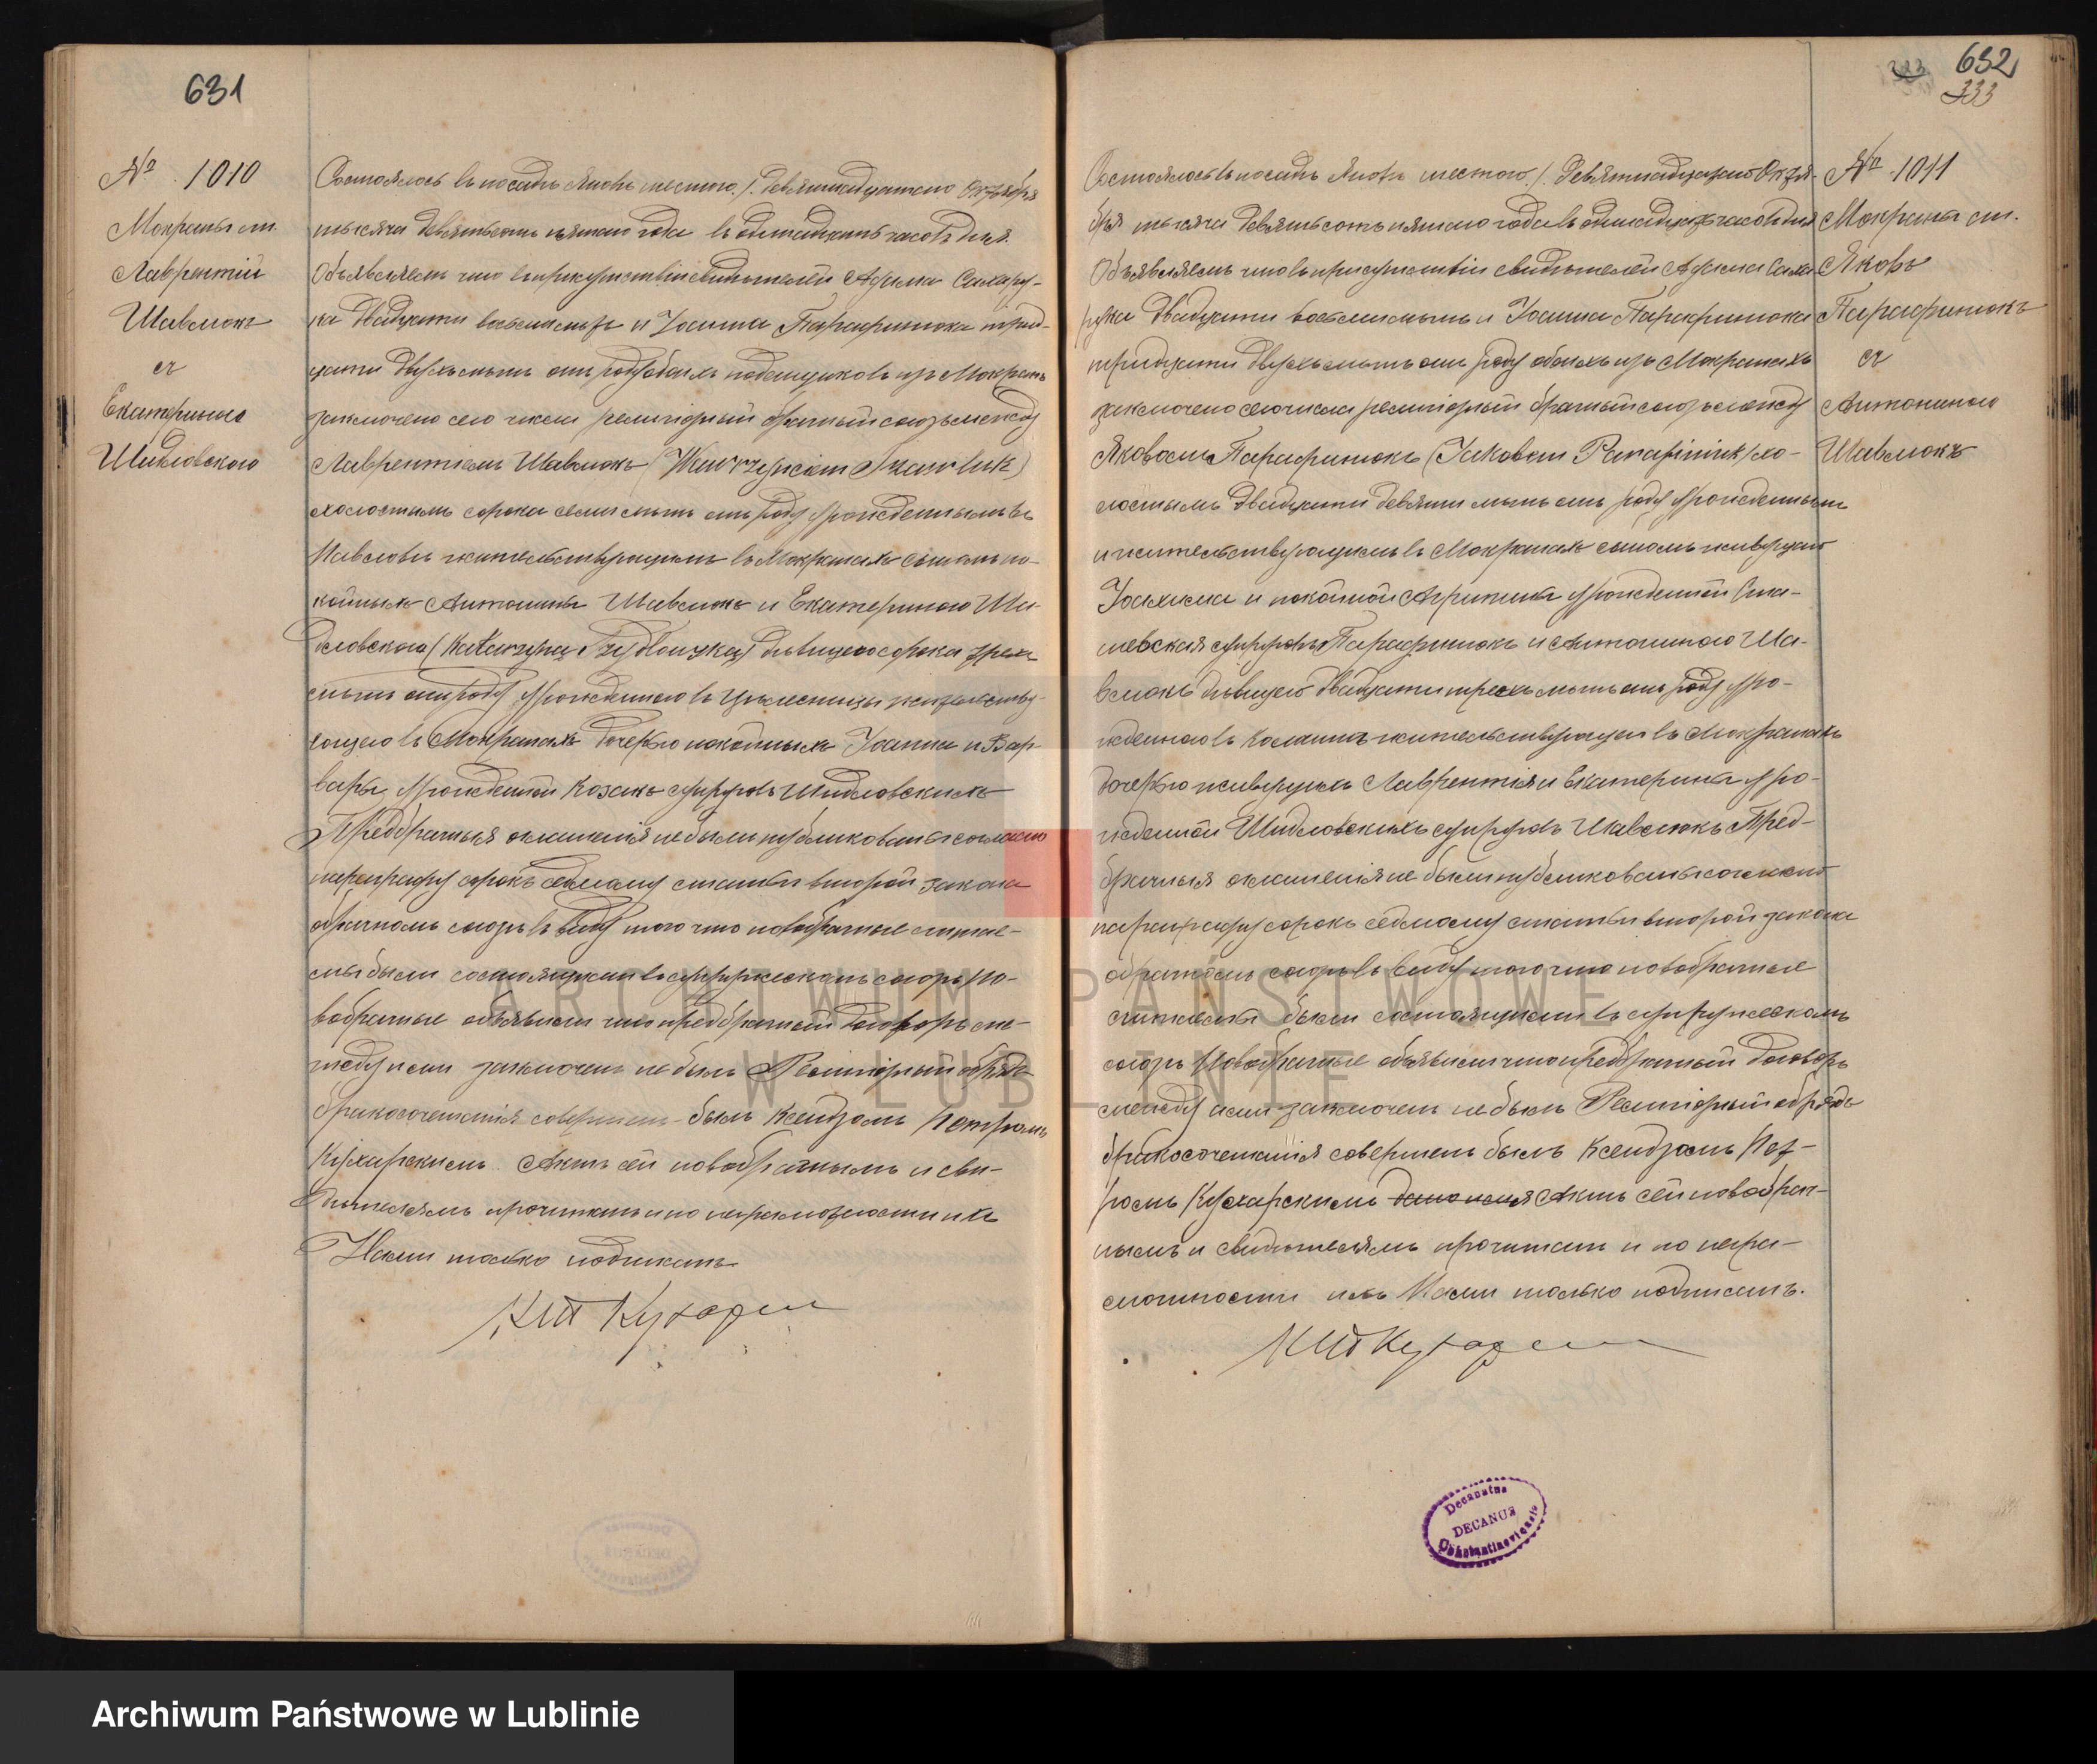 631
№ 1010
Мокраны ст.
Лаврентій
Шавлюкъ
съ
Екатериною
Шидловскою
Состоялось въ посадѣ Яновѣ шестого /. девятнадцатаго Октября
тысяча девятьсотъ пятаго года въ одинадцать часовъ дня.
Объявляемъ что въ присутствіи свидѣтелей Адама Сахару-
ка двадцати восьми лѣтъ и Іоанна Парафинюка трид-
цати двухъ лѣтъ отъ роду обоихъ поденщиковъ изъ Мокранъ
заключено сего числа религіозный брачный союзъ между
Лаврентіемъ Шавлюкъ (Wawrzyńcem Szawluk)
холостымъ сорока семи лѣтъ отъ роду урожденнымъ въ
Павловѣ жительствующимъ въ Мокранахъ сыномъ по-
койныхъ Антонины Шавлюкъ и Екатериною Ши-
дловскою (Katarzyną Szydłowską) дѣвицею сорока трехъ
лѣтъ отъ роду урожденною въ жительству-
ющею въ Мокранахъ дочерью покойныхъ Іоанна и Вар-
вары урожденной Козакъ супруговъ Шидловскихъ
Предбрачныя оглашенія не были публикованы согласно
параграфу сорокъ седьмому статьи второй закона
о брачномъ союзѣ въ виду того что новобрачные считае-
мы были состоящими въ супружескомъ союзѣ Но-
вобрачные объявили что предбрачный договоръ ме-
жду ними заключенъ не былъ Религіозный обрядъ
бракосочетанія совершенъ былъ Ксендзомъ Петромъ
Кухарскимъ. Актъ сей новобрачнымъ и сви-
дѣтелямъ прочитанъ и по неграмотности ихъ
Нами только подписанъ
КПКухарски
632
333
№ 1011
Мокраны ст.
Яковъ
Парафинюкъ
съ
Антониною
Шавлюкъ
Состоялось въ посадѣ Яновѣ шестого /. девятнадцатаго Октя-
бря тысяча девятьсотъ пятаго года въ одинадцать часовъ дня
Объявляемъ что въ присутствіи свидѣтелей Адама Саха-
рука двадцати восьми лѣтъ и Іоанна Парафинюка
тридцати двухъ лѣтъ отъ роду обоихъ изъ Мокранахъ
заключено сего числа религіозный брачный союзъ между
Яковомъ Парафинюкъ (Jakobem Parafiniuk) хо-
лостымъ двадцати девяти лѣтъ отъ роду урожденнымъ
и жительствующимъ въ Мокранахъ сыномъ живущаго
Іоакима и покойной Агрипины урожденной
супруговъ Парафинюкъ и Антониною Ша-
влюкъ дѣвицею двадцати трехъ лѣтъ отъ роду уро-
жденною въ жительствующей въ Мокранахъ
дочерью живущихъ Лаврентія и Екатерины уро-
жденной Шидловскихъ супруговъ Шавлюкъ Пред-
брачныя оглашенія не были публикованы согласно
параграфу сорокъ седьмому статьи второй закона
о брачномъ союзѣ въ виду того что новобрачные
считаемы были состоящими въ супружескомъ
союзѣ Новобрачные объявили что предбрачный договоръ
между ними заключенъ не былъ Религіозный обрядъ
бракосочетанія совершенъ былъ Ксендзомъ Пет-
ромъ Кухарскимъ Актъ сей новобрач-
нымъ и свидѣтелямъ прочитанъ и по негра-
мотности ихъ Нами только подписанъ.
КПКухарски
Decanatus
DECANUS
Constantinoviensis
ARCHIWUM PAŃSTWOWE
W LUBLINIE
Archiwum Państwowe w Lublinie